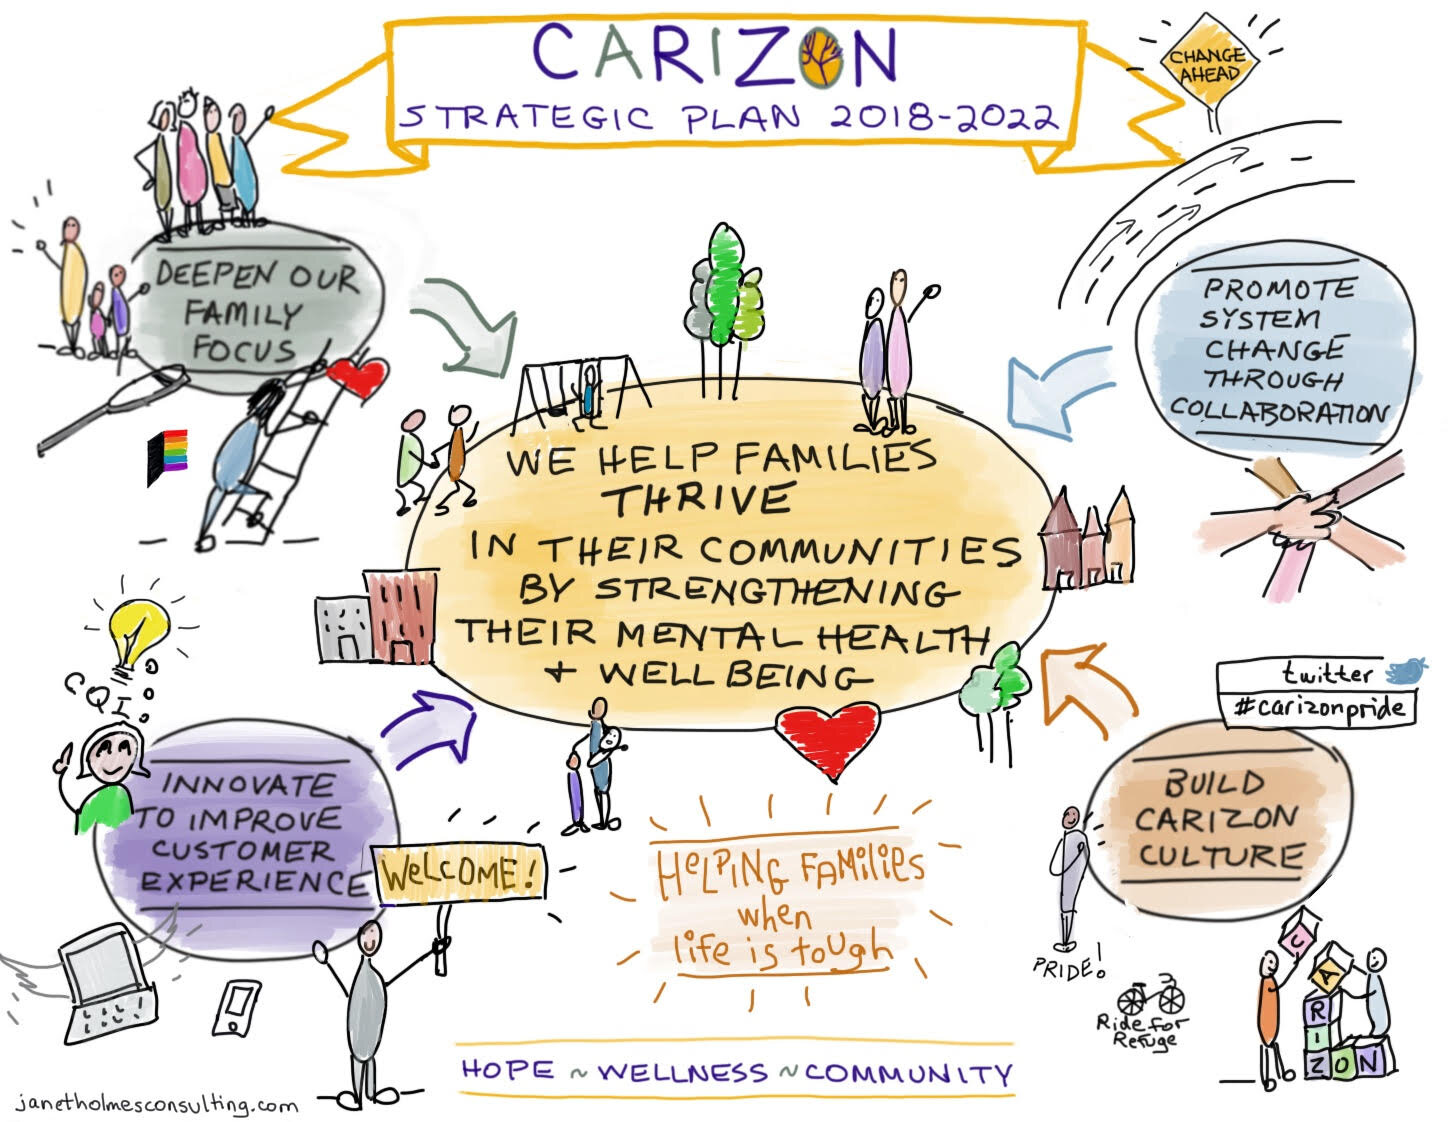 CARIZON
STRATEGIC PLAN 2018-2022
CHANGE
AHEAD
DEEPEN OUR
FAMILY
FOCUS
PROMOTE
SYSTEM
CHANGE
THROUGH
COLLABORATION
WE HELP FAMILIES
THRIVE
IN THEIR COMMUNITIES
BY STRENGTHENING
THEIR MENTAL HEALTH
+ WELL BEING
CQI
INNOVATE
TO IMPROVE
CUSTOMER
EXPERIENCE
WELCOME!
twitter
#carizonpride
BUILD
CARIZON
CULTURE
PRIDE!
Ride for
Refuge
C
A
R
I
ZON
HELPING FAMiLiES
when
life is tough
HOPE ~ WELLNESS ~ COMMUNITY
janetholmesconsulting.com